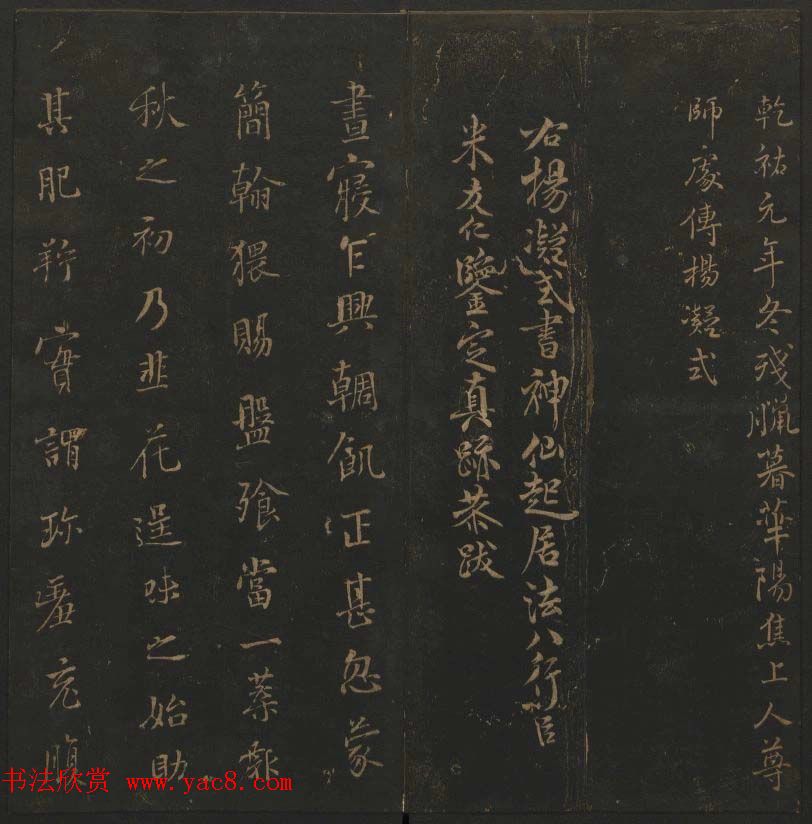 乾祐元年冬殘臘暮華陽焦上人尊
師處傳楊凝式
右楊凝式書神仙起居法八行臣
米友仁鑒定真跡恭跋
晝寢乍興輖飢正甚忽蒙
簡翰猥賜盤飧當一葉報
秋之初乃韭花逞味之始助
其肥羜實謂珍羞充腹
书法欣赏 www.yac8.com